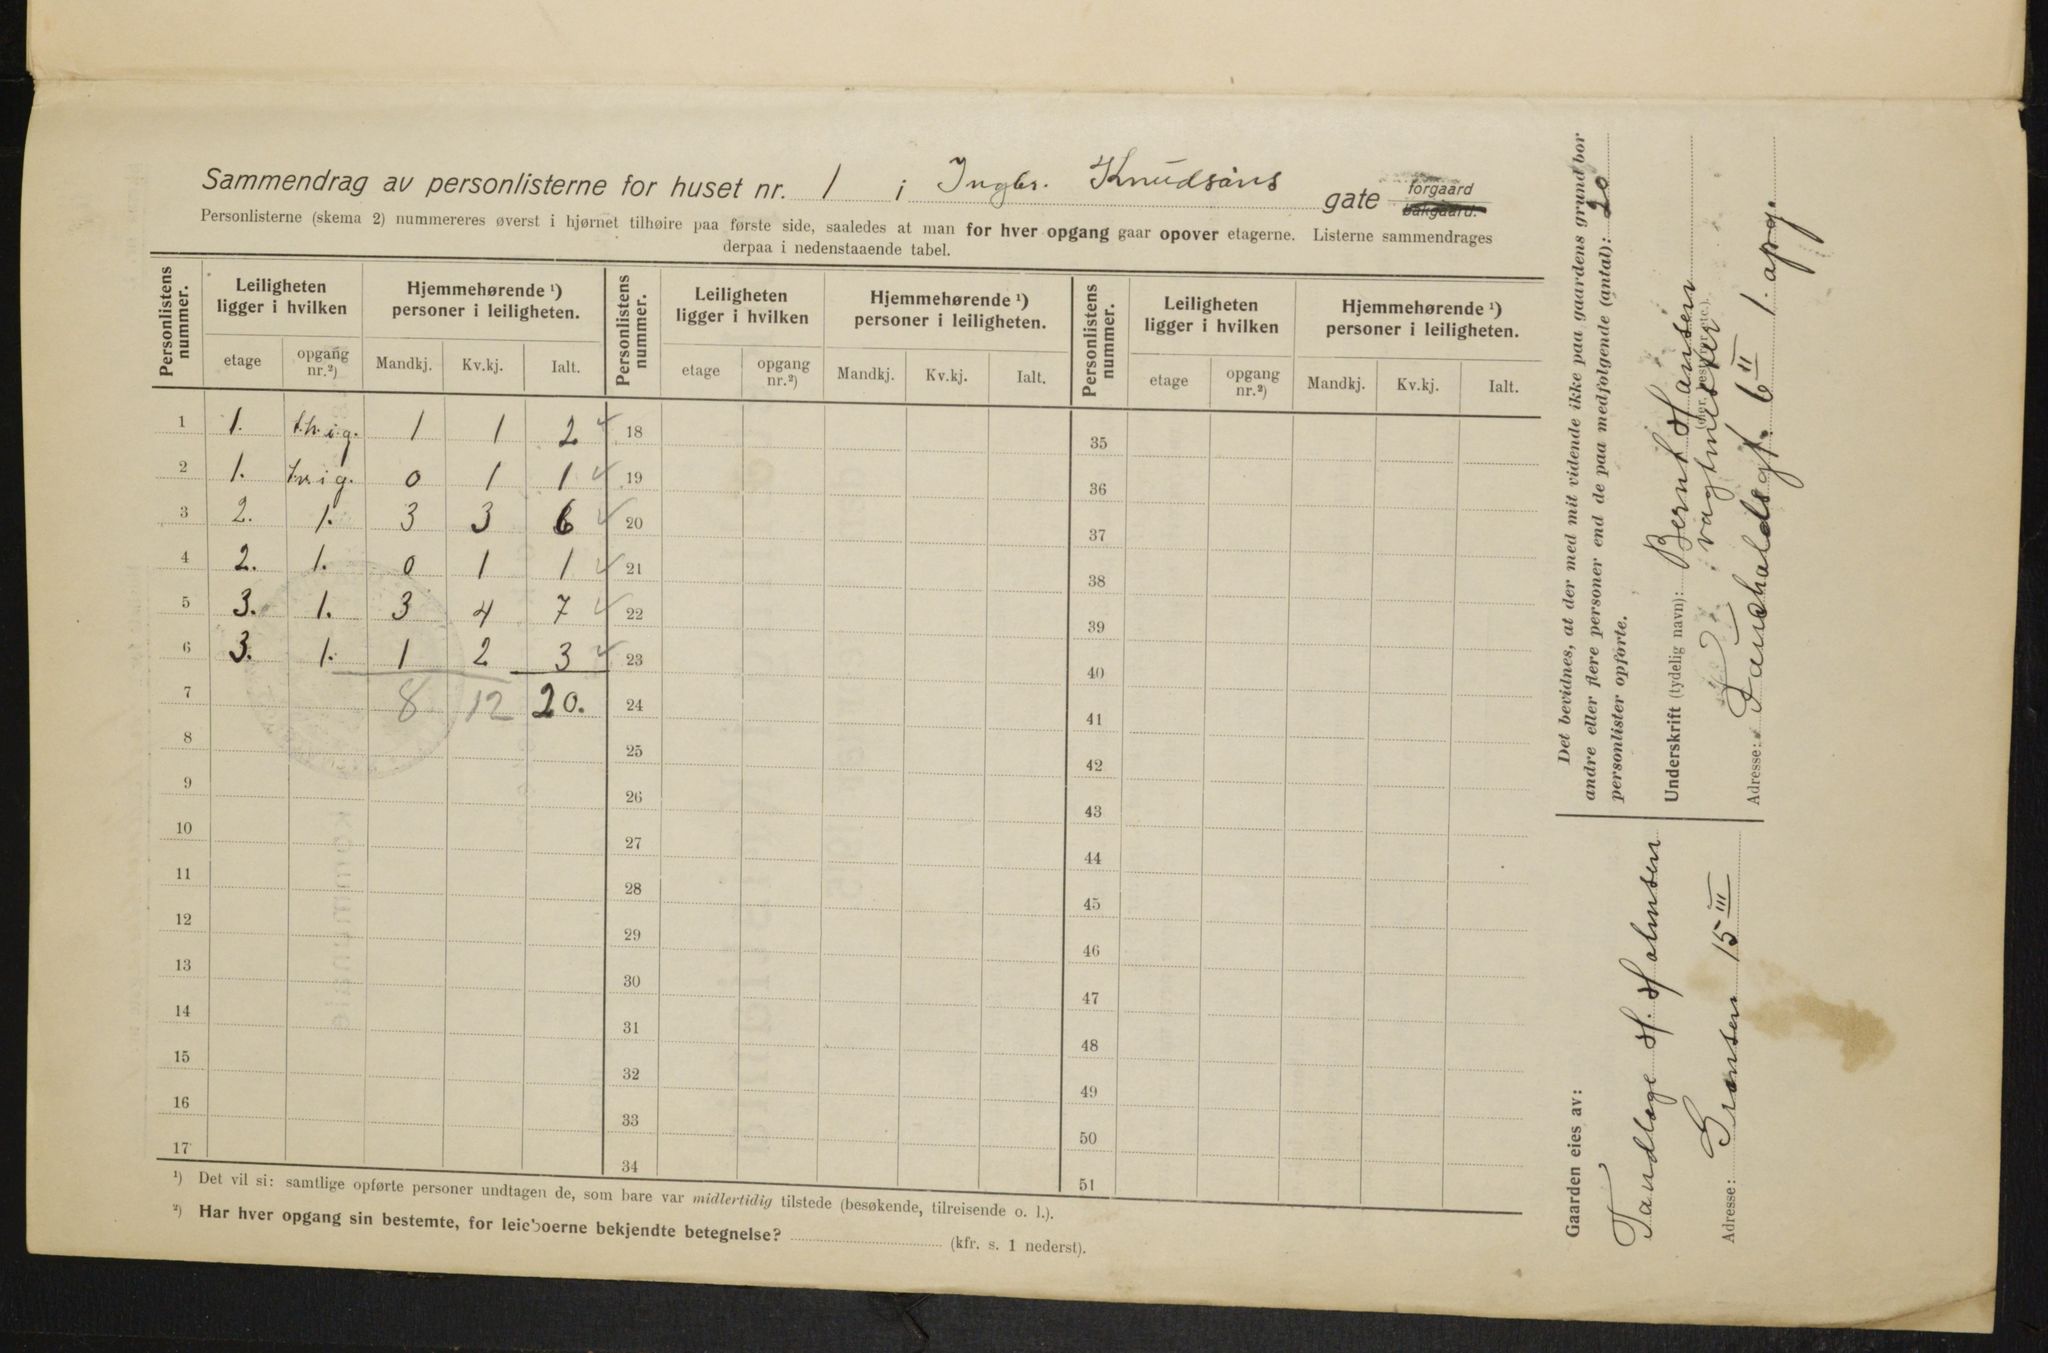 Sammendrag av personlisterne for huset nr. 1 i Ingbr. Knudsøns gate forgaard bakgaard.
Personlisterne (skema 2) nummereres øverst i hjørnet tilhøire paa første side, saaledes at man for hver opgang gaar opover etagerne. Listerne sammendrages
derpaa i nedenstaaende tabel.
Personlistens nummer. Leiligheten ligger i hvilken Hjemmehørende ¹) personer i leiligheten. Personlistens nummer. Leiligheten ligger i hvilken Hjemmehørende ¹) personer i leiligheten. Personlistens nummer. Leiligheten ligger i hvilken Hjemmehørende ¹) personer i leiligheten.
etage opgang nr.²) Mandkj. Kv.kj. Ialt. etage opgang nr.²) Mandkj. Kv.kj. Ialt. etage opgang nr.²) Mandkj. Kv.kj. Ialt.
1 1. 1 1 2 18 35
2 1. 0 1 1 19 36
3 2. 1. 3 3 6 20 37
4 2. 1. 0 1 1 21 38
5 3. 1. 3 4 7 22 39
6 3. 1. 1 2 3 23 40
7 8 12 20. 24 41
8 25 42
9 26 43
10 27 44
11 28 45
12 29 46
13 30 47
14 31 48
15 32 49
16 33 50
17 34 51
¹) Det vil si: samtlige opførte personer undtagen de, som bare var midlertidig tilstede (besøkende, tilreisende o. l.).
²) Har hver opgang sin bestemte, for leieboerne bekjendte betegnelse? (kfr. s. 1 nederst).
Gaarden eies av:
Tandlæge H. Holmsen
Adresse: Grænsen 15 III
Det bevidnes, at der med mit vidende ikke paa gaardens grund bor
andre eller flere personer end de paa medfølgende (antal): 20
personlister opførte.
Underskrift (tydelig navn): Bernt Hansen
vagtmester
(eier, bestyrer etc.).
Adresse: Fauchaldsgt. 6 II 1. opg.